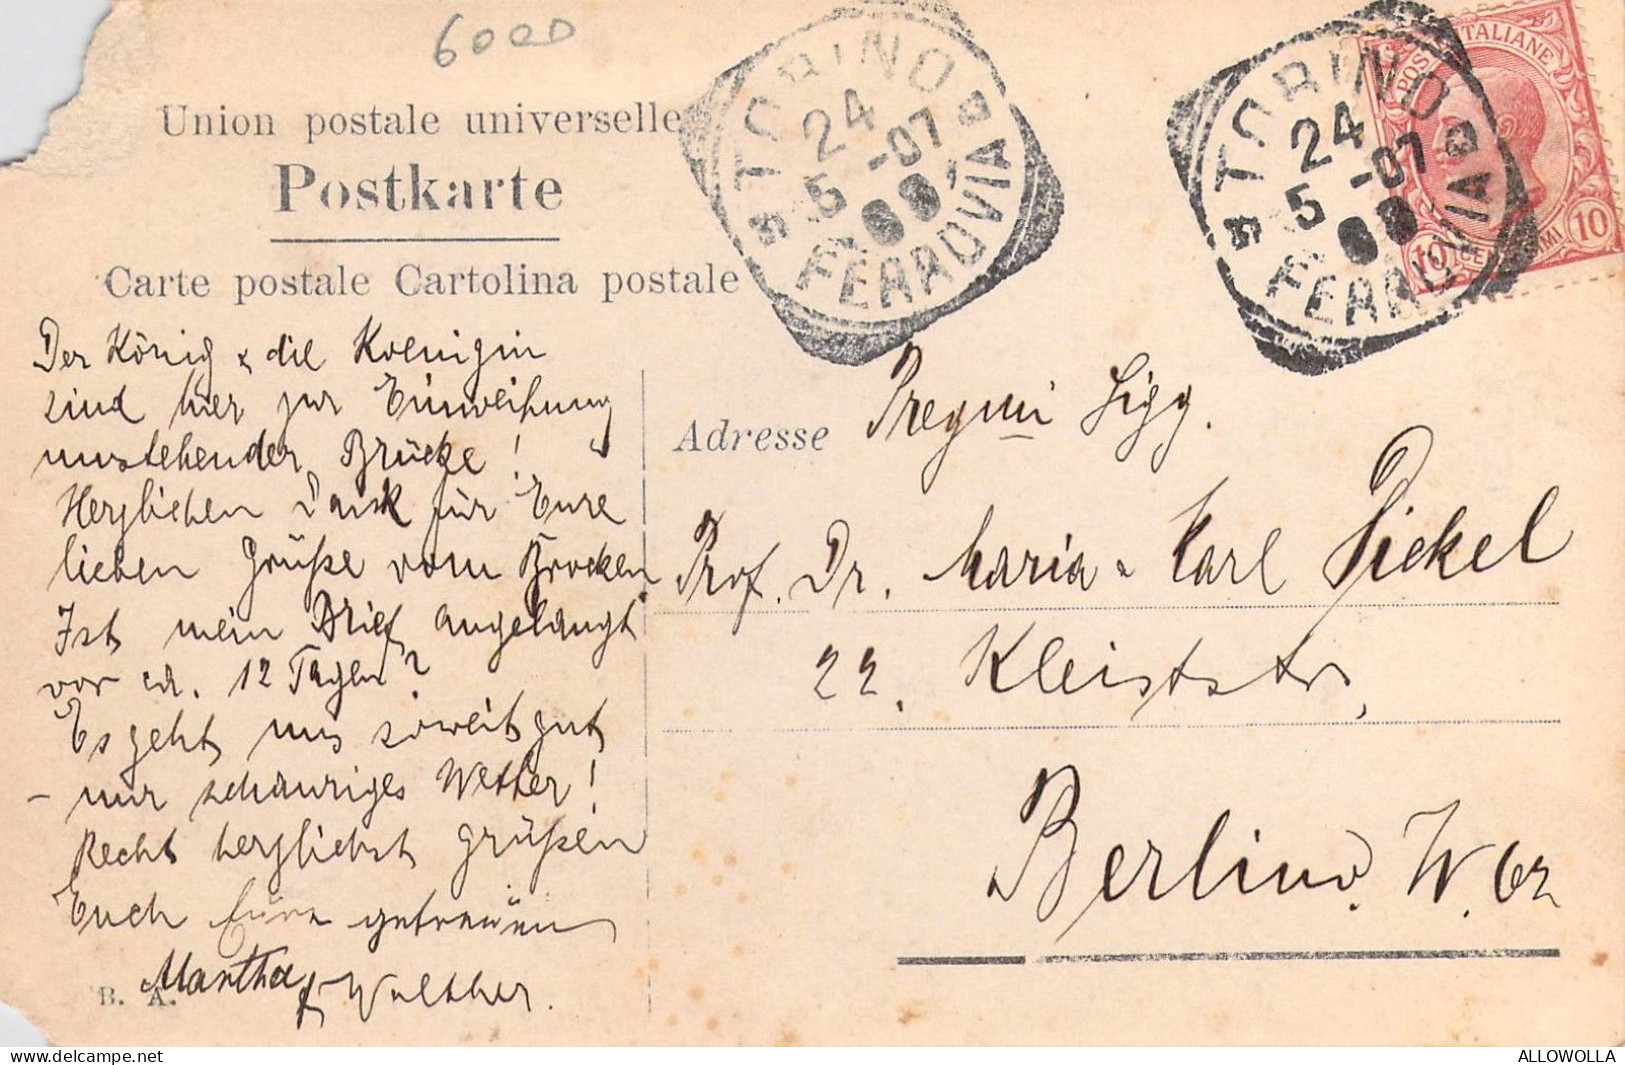 6000
Union postale universelle
Postkarte
Carte postale Cartolina postale
TORINO
24
5-07
FERROVIA
TORINO
24
5-07
FERROVIA
POSTE ITALIANE
10 10
Der König & die Koenigin
sind hier zur Einweihung
umstehender Brücke!
Herzlichen Dank für Eure
lieben Grüße vom Brocken.
Ist mein Brief angelangt
vor ca. 12 Tagen?
Es geht uns soweit gut
– nur schauriges Wetter!
Recht herzlichst grüßen
Euch Eure getreuen
Martha & Walther.
B. A.
Adresse
Pregmi Sigg.
Prof. Dr. Maria & Karl Pickel
22. Kleiststr,
Berlino. W. 62
ALLOWOLLA